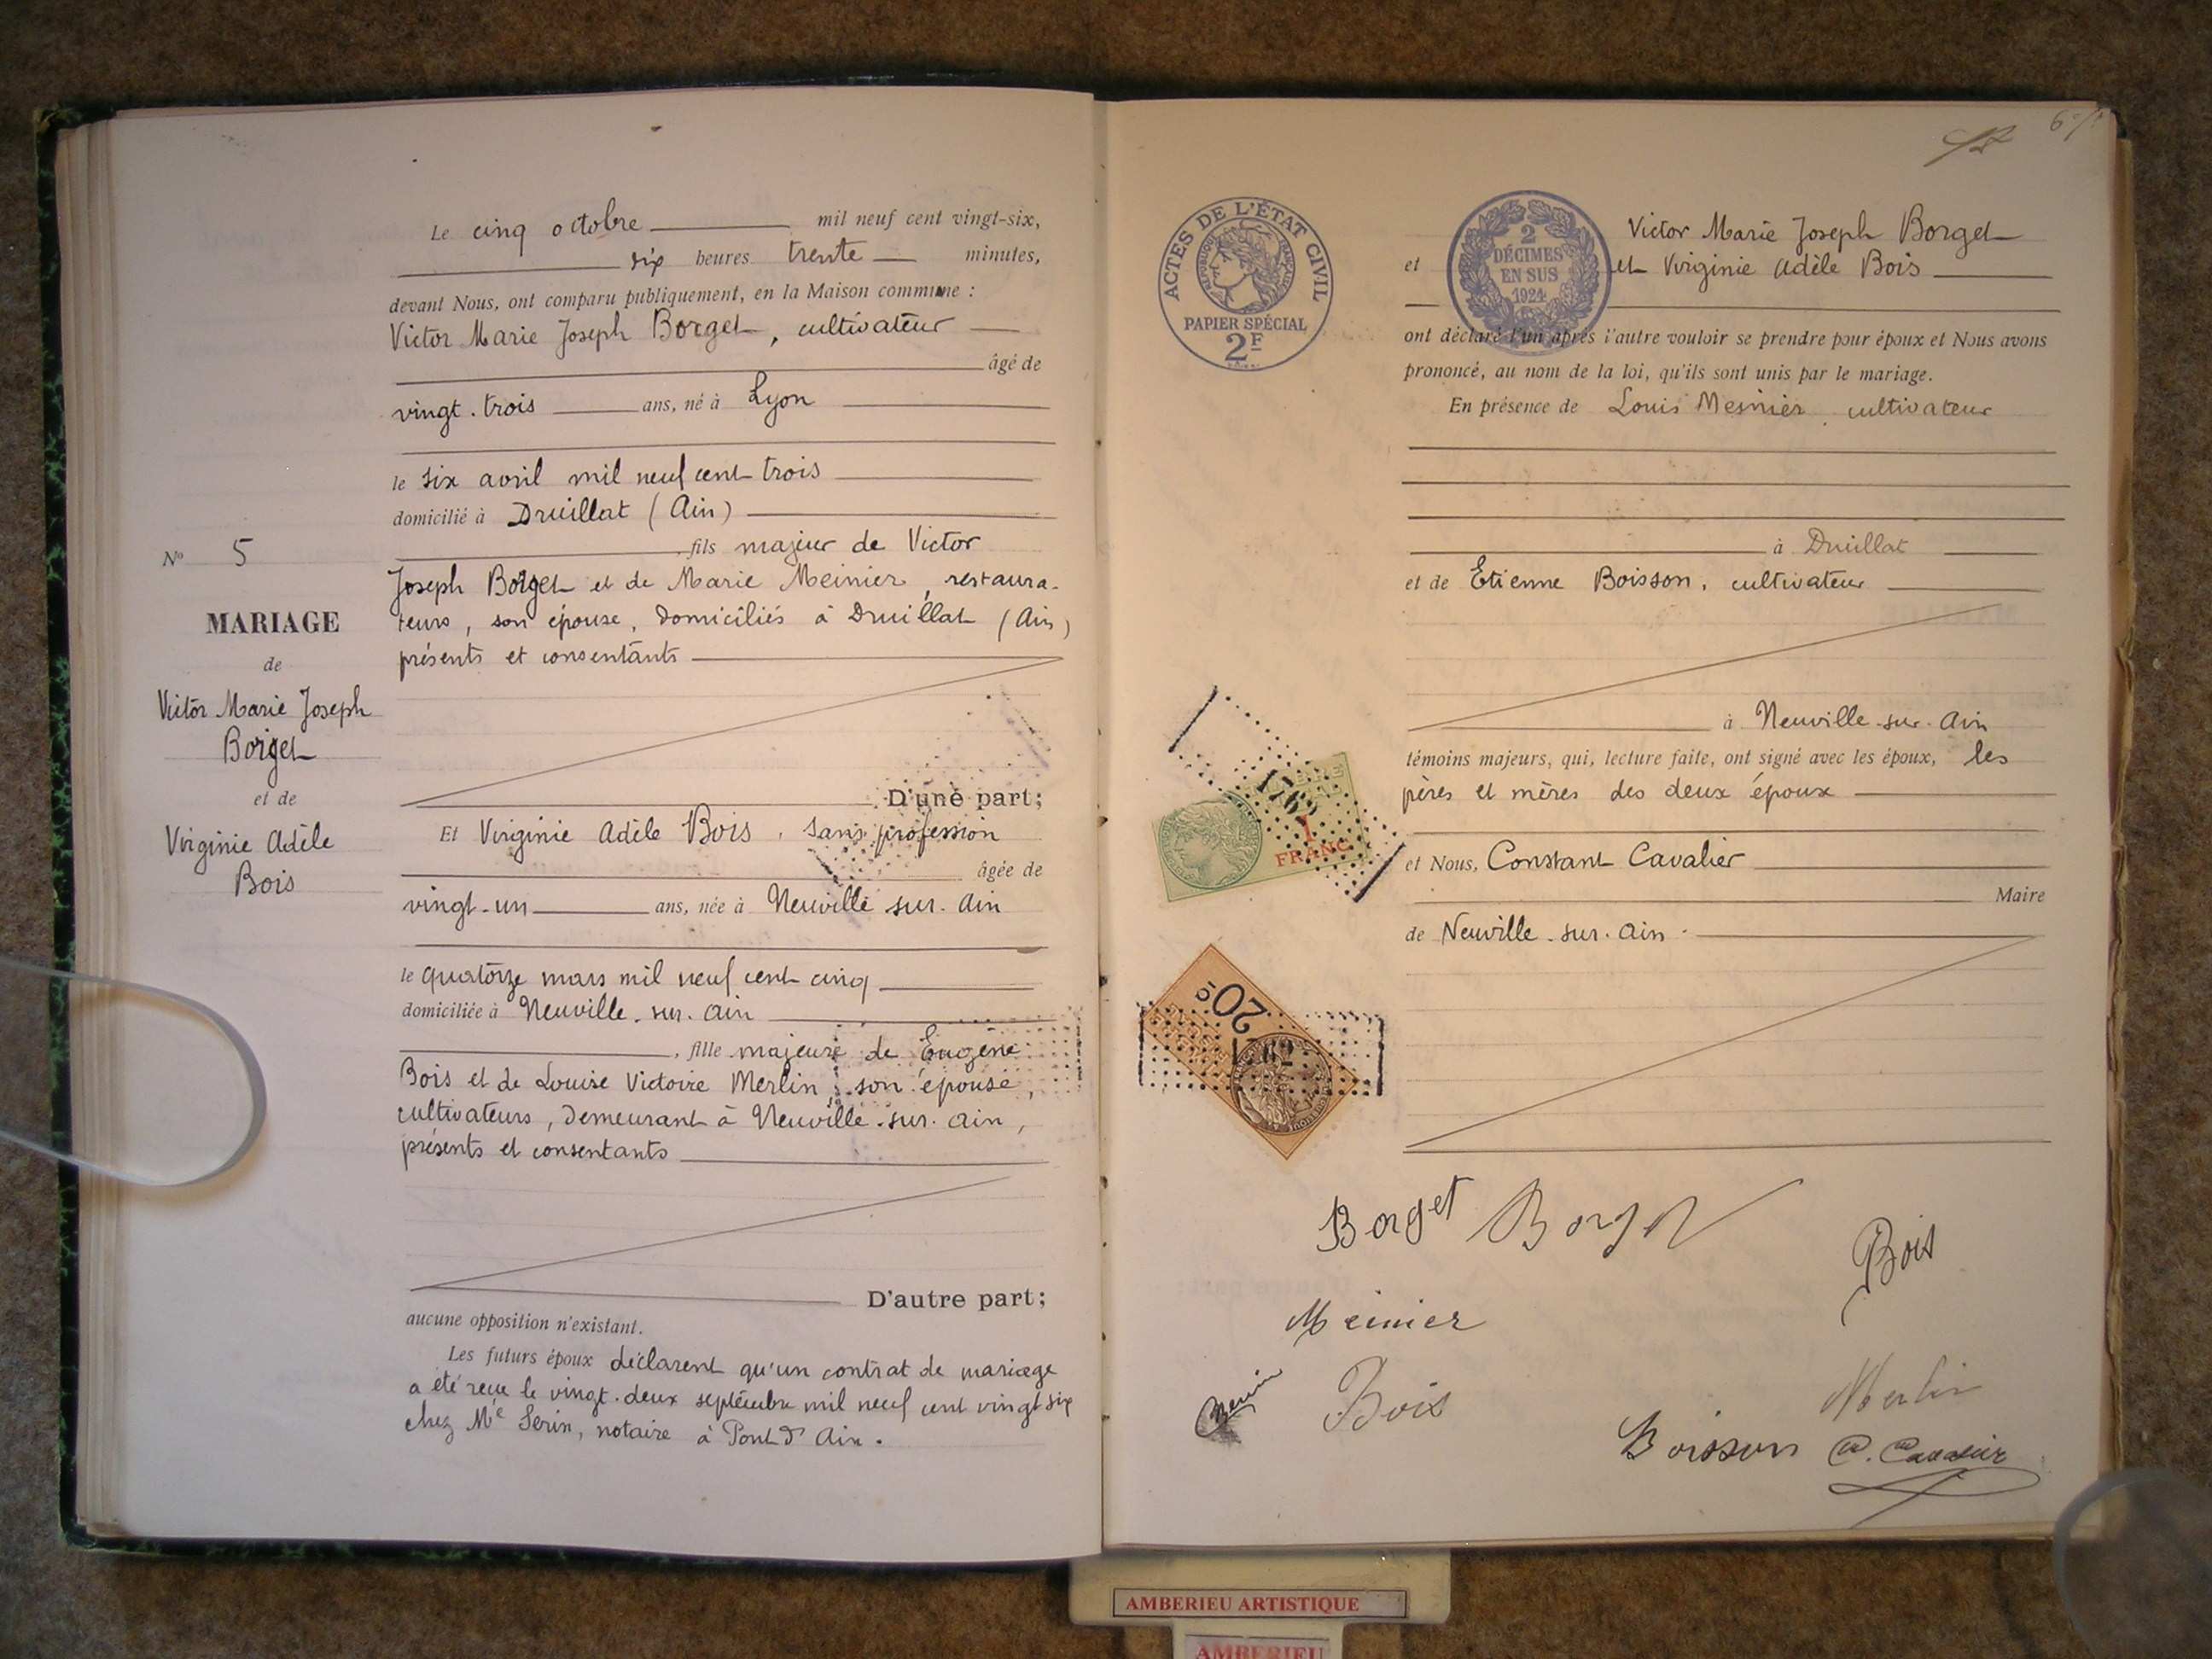 Le cinq octobre mil neuf cent vingt-six,
six heures trente minutes,
devant Nous, ont comparu publiquement, en la Maison commune :
Victor Marie Joseph Borget, cultivateur
âgé de
vingt-trois ans, né à Lyon
le six avril mil neuf cent trois
domicilié à Druillat (Ain)
, fils majeur de Victor
Joseph Borget et de Marie Meinier, restaura-
teurs, son épouse, domiciliés à Druillat (Ain)
présents et consentants
D'une part;
Et Virginie Adèle Bois, sans profession
âgée de
vingt-un ans, née à Neuville sur-Ain
le quatorze mars mil neuf cent cinq
domiciliée à Neuville-sur-Ain
, fille majeure de Eugène
Bois et de Louise Victoire Merlin, son épouse,
cultivateurs, demeurant à Neuville-sur-Ain,
présents et consentants
D'autre part;
aucune opposition n'existant.
Les futurs époux déclarent qu'un contrat de mariage
a été reçu le vingt-deux septembre mil neuf cent vingt six
chez Me Serin, notaire à Pont d'Ain.
No 5
MARIAGE
de
Victor Marie Joseph
Borget
et de
Virginie Adèle
Bois
ACTES DE L'ÉTAT CIVIL
RÉPUBLIQUE FRANÇAISE
PAPIER SPÉCIAL
2F
2
DÉCIMES
EN SUS
1924
Victor Marie Joseph Borget
et et Virginie Adèle Bois
ont déclaré l'un après l'autre vouloir se prendre pour époux et Nous avons
prononcé, au nom de la loi, qu'ils sont unis par le mariage.
En présence de Louis Mesnier cultivateur
à Druillat
et de Etienne Boisson, cultivateur
à Neuville-sur-Ain
témoins majeurs, qui, lecture faite, ont signé avec les époux, les
pères et mères des deux époux
et Nous, Constant Cavalier
Maire
de Neuville-sur-Ain.
1762
1
FRANC
20c
1762
Borget Borget
Bois
Meinier
Bois
Merlin
Boisson C. Cavalier
AMBERIEU ARTISTIQUE
AMBERIEU